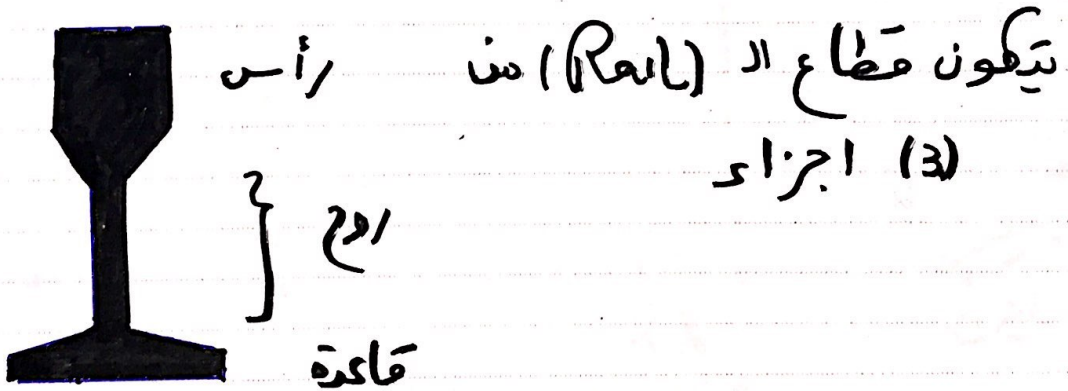 يتكون مقطاع ال (Rail) من
(3) اجزاء
رأس
روح
قاعدة